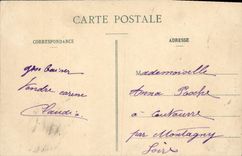 CARTE POSTALE
CORRESPONDANCE
ADRESSE
gros baiser
tendre caresse
Claudia
Mademoiselle
Anna Poche
à Coutouvre
par Montagny
Loire